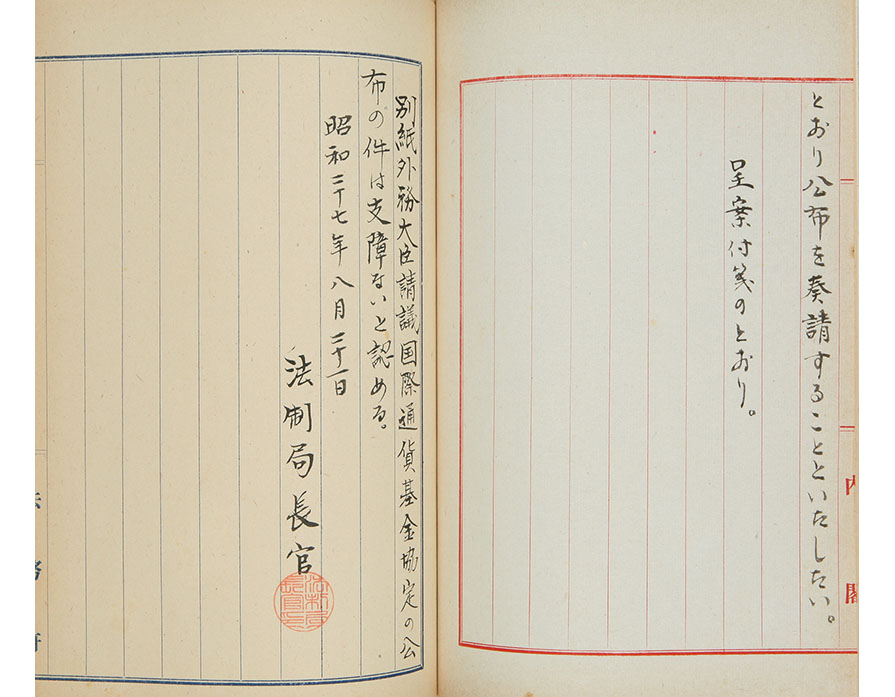 とおり公布を奏請することといたしたい。
呈案付箋のとおり。
内閣
別紙外務大臣請議国際通貨基金協定の公
布の件は支障ないと認める。
昭和二十七年八月二十一日
法制局長官